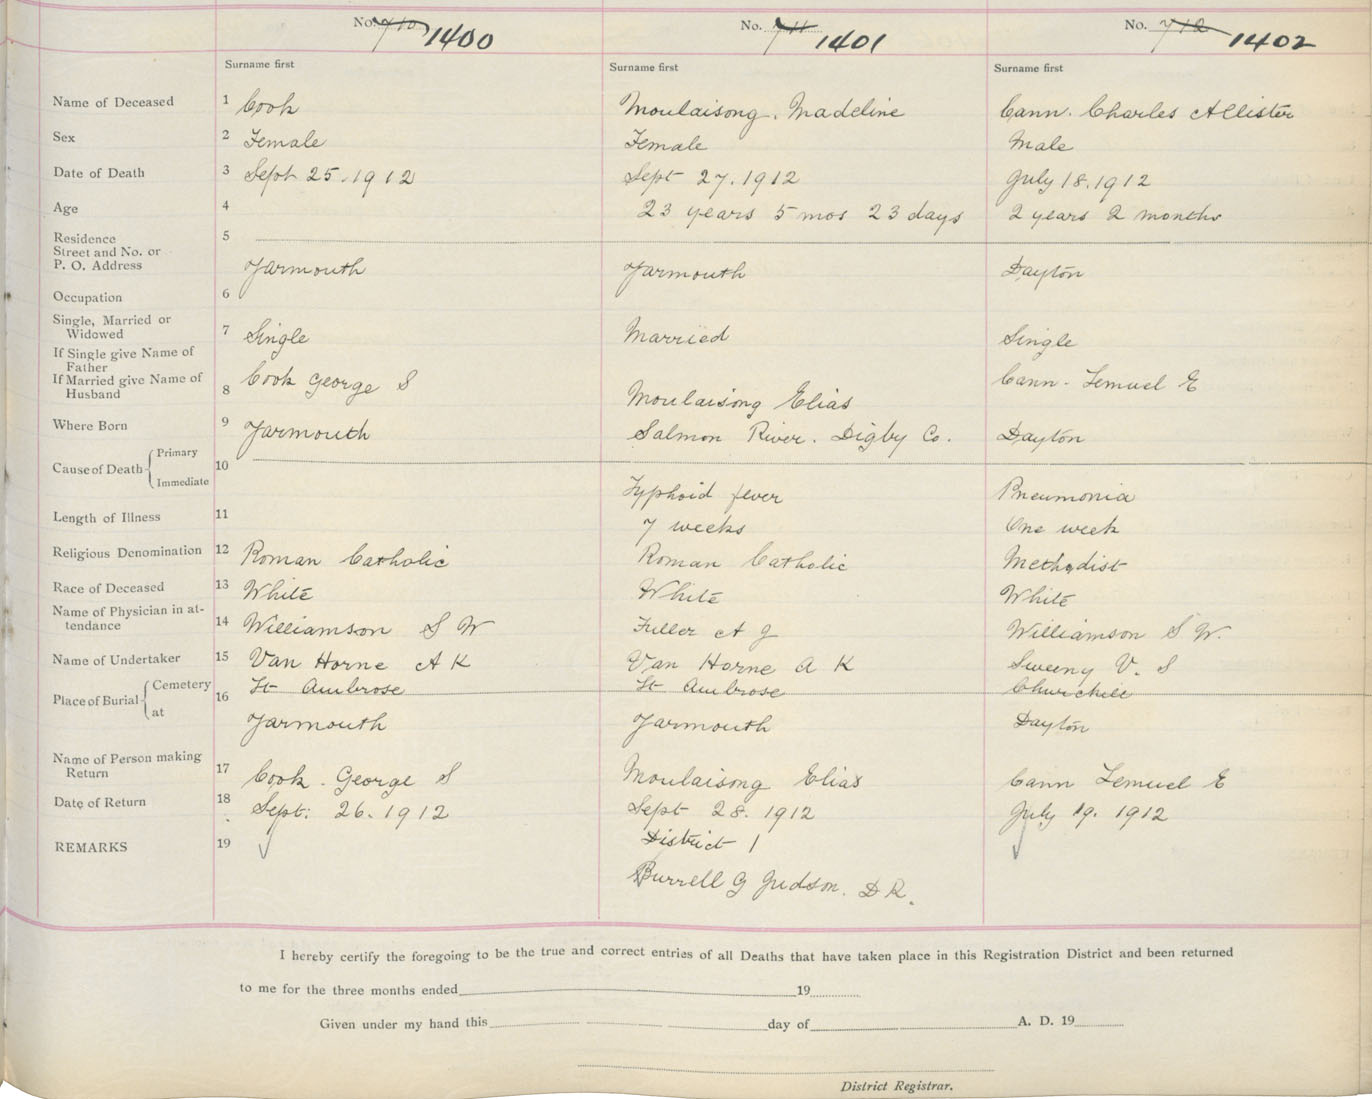 No. 710 1400 No. 711 1401 No. 712 1402
Surname first Surname first Surname first
Name of Deceased 1 Cook Moulaisong. Madeline Cann. Charles Allister
Sex 2 Female Female Male
Date of Death 3 Sept 25. 1912 Sept 27. 1912 July 18. 1912
Age 4 23 years 5 mos 23 days 2 years 2 months
Residence 5
Street and No. or
P. O. Address Yarmouth Yarmouth Dayton
Occupation 6
Single, Married or
Widowed 7 Single Married Single
If Single give Name of
Father
If Married give Name of
Husband 8 Cook George S Moulaisong Elias Cann. Lemuel E
Where Born 9 Yarmouth Salmon River. Digby Co. Dayton
Cause of Death Primary
Immediate 10 Typhoid fever Pneumonia
Length of Illness 11 7 weeks One week
Religious Denomination 12 Roman Catholic Roman Catholic Methodist
Race of Deceased 13 White White White
Name of Physician in at-
tendance 14 Williamson S W Fuller A J Williamson S W.
Name of Undertaker 15 Van Horne A K Van Horne A K Sweeny V. S
Place of Burial Cemetery 16 St Ambrose St Ambrose Churchill
at Yarmouth Yarmouth Dayton
Name of Person making
Return 17 Cook. George S Moulaisong Elias Cann Lemuel E
Date of Return 18 Sept: 26. 1912 Sept 28. 1912 July 19. 1912
REMARKS 19 District 1
Burrell G Judson. D R.
I hereby certify the foregoing to be the true and correct entries of all Deaths that have taken place in this Registration District and been returned
to me for the three months ended 19
Given under my hand this day of A. D. 19
District Registrar.